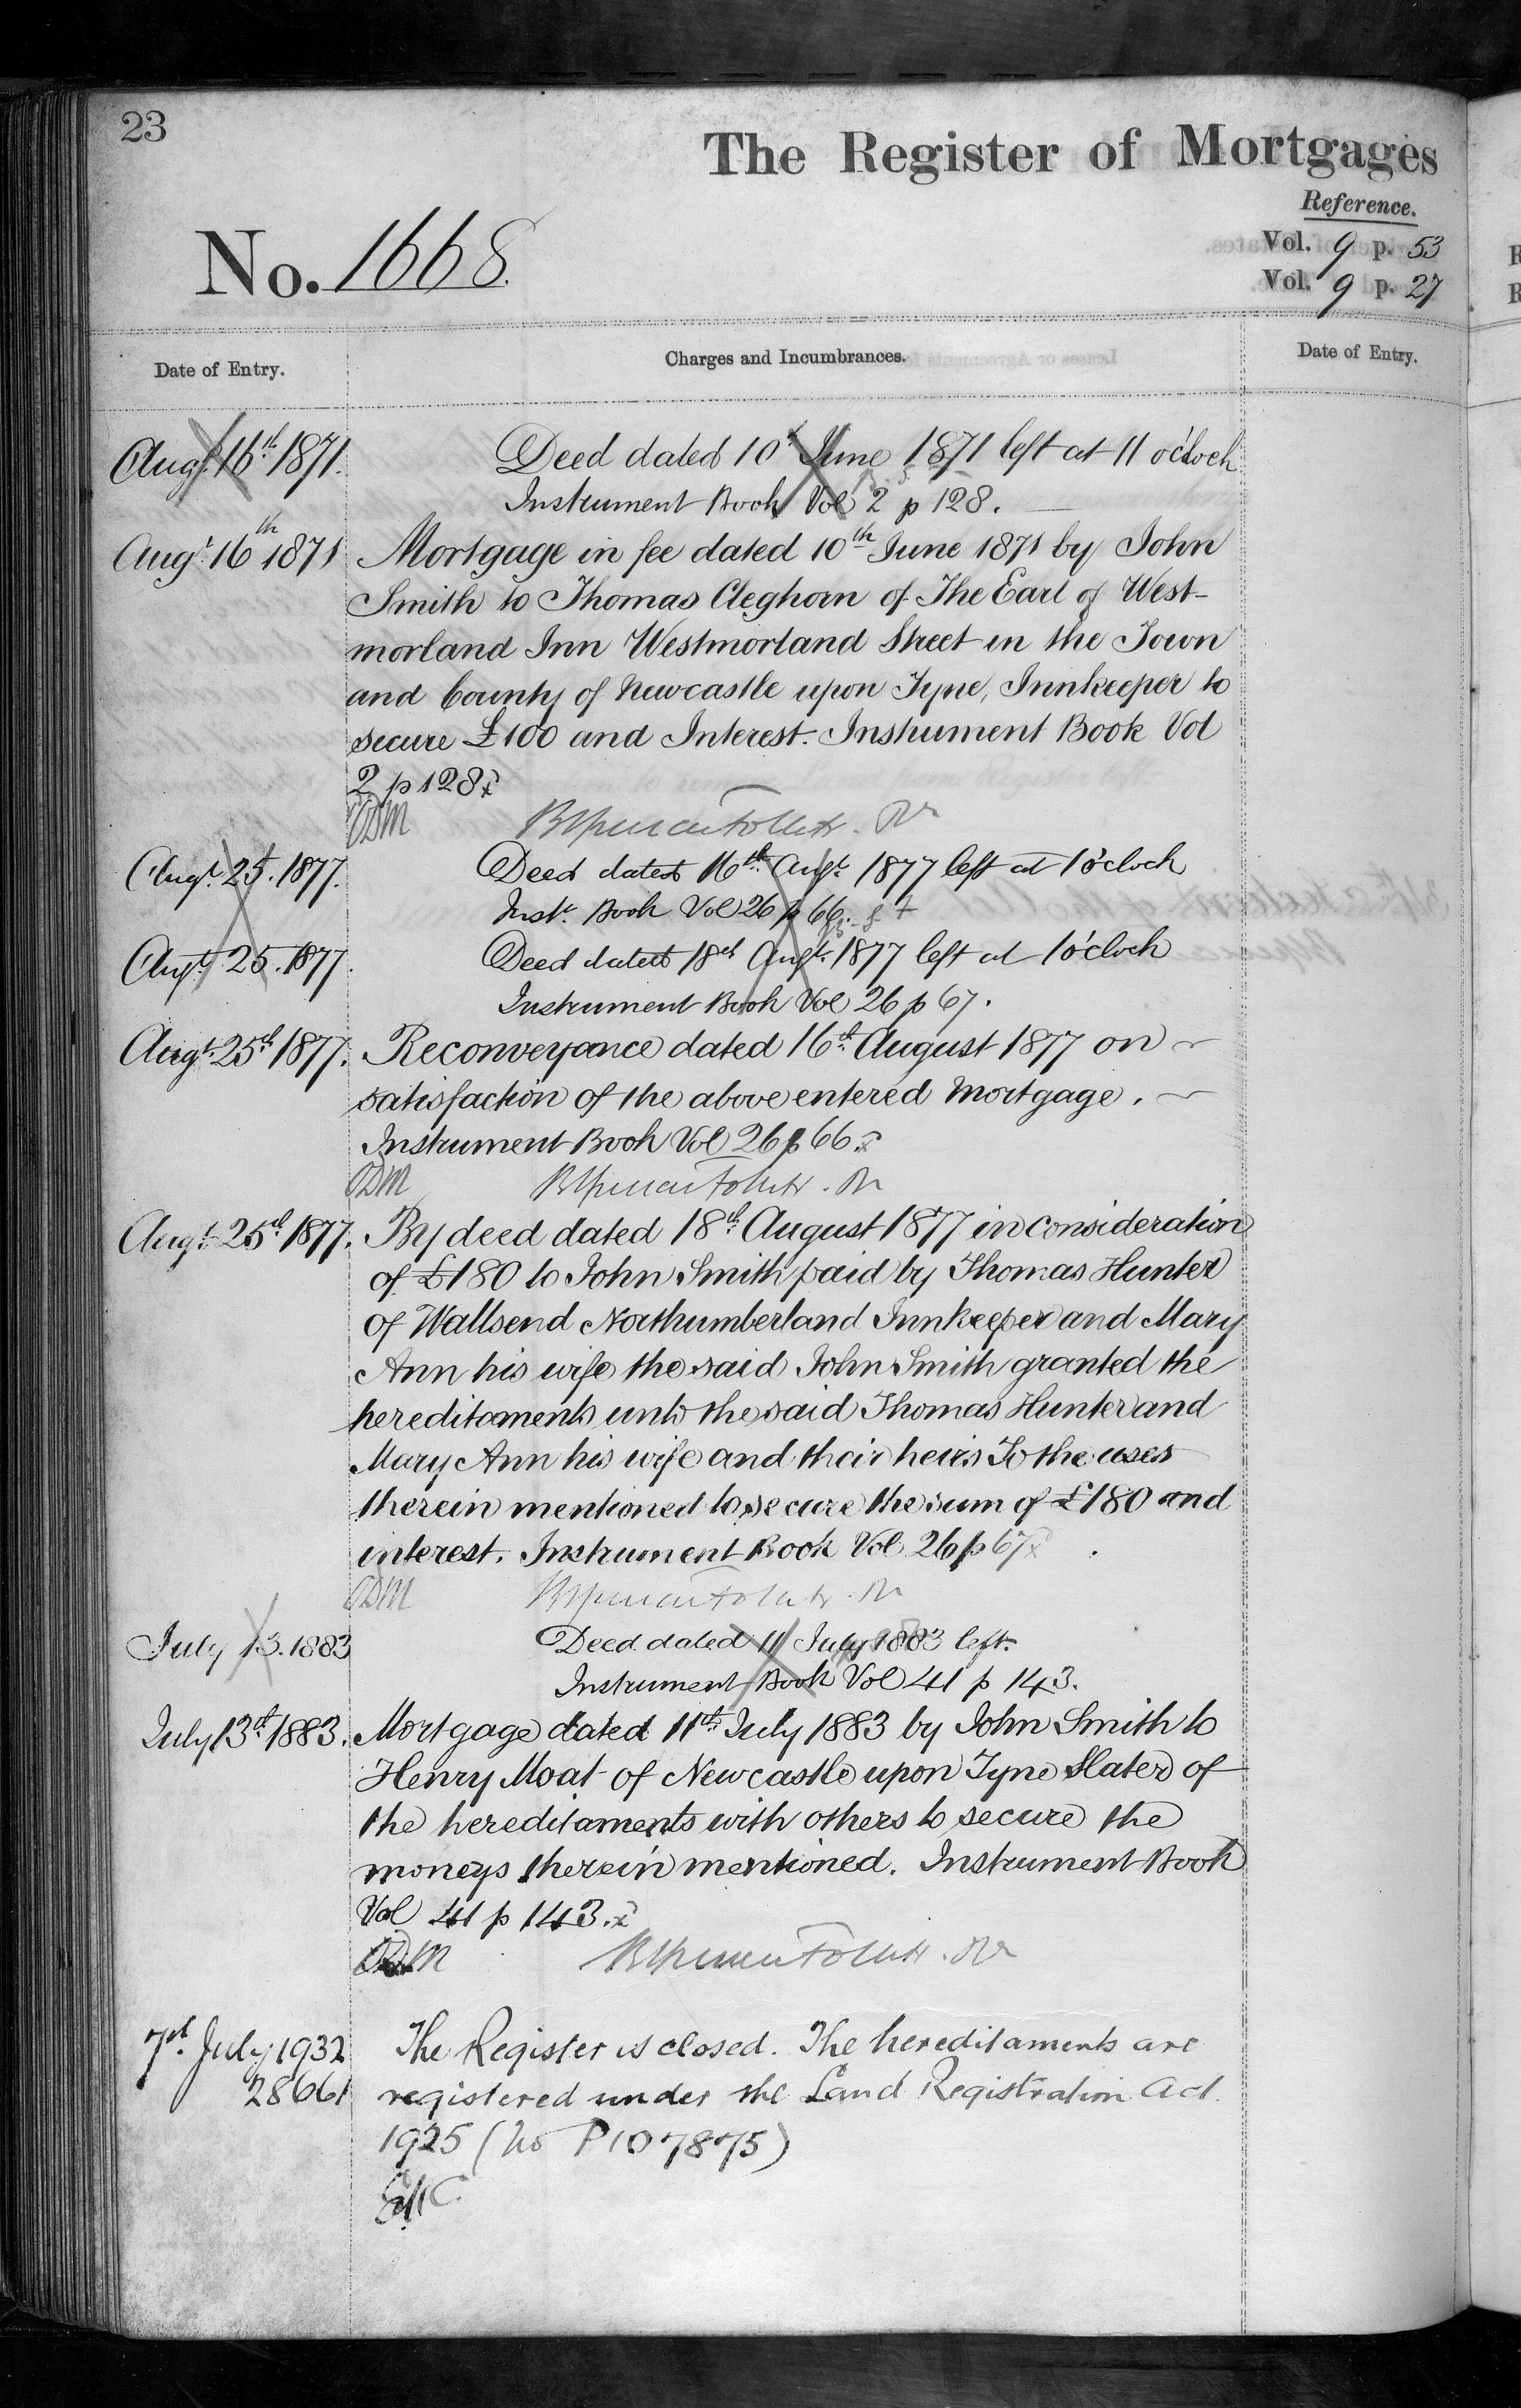 23
The Register of Mortgages
Reference.
Vol. 9 p. 53
Vol. 9 p. 27
No. 1668.
Date of Entry.
Charges and Incumbrances.
Date of Entry.
Augt. 16th 1871. Deed dated 10th June 1871 left at 11 o'clock
Instrument Book Vol 2 p 128.
Augt. 16th 1871 Mortgage in fee dated 10th June 1871 by John
Smith to Thomas Cleghorn of The Earl of West-
morland Inn Westmorland Street in the Town
and County of Newcastle upon Tyne, Innkeeper to
secure £100 and Interest. Instrument Book Vol
2 p 128
Augt. 25. 1877. Deed dated 16th Augt. 1877 left at 1 o'clock
Inst. Book Vol 26 p 66.
Augt. 25. 1877. Deed dated 18th Augt. 1877 left at 1 o'clock
Instrument Book Vol 26 p 67.
Augt. 25th 1877. Reconveyance dated 16th August 1877 on
satisfaction of the above entered Mortgage.
Instrument Book Vol 26 p 66.
Augt. 25th 1877. By deed dated 18th August 1877 in consideration
of £180 to John Smith paid by Thomas Hunter
of Wallsend Northumberland Innkeeper and Mary
Ann his wife the said John Smith granted the
hereditaments unto the said Thomas Hunter and
Mary Ann his wife and their heirs To the uses
therein mentioned to secure the sum of £180 and
interest. Instrument Book Vol 26 p 67
July 13. 1883 Deed dated 11 July 1883 left.
Instrument Book Vol 41 p 143.
July 13th 1883. Mortgage dated 11th July 1883 by John Smith to
Henry Moat of Newcastle upon Tyne Slater of
the hereditaments with others to secure the
moneys therein mentioned. Instrument Book
Vol 41 p 143.
7th July 1932 The Register is closed. The hereditaments are
28061 registered under the Land Registration Act
1925 (No P107875)